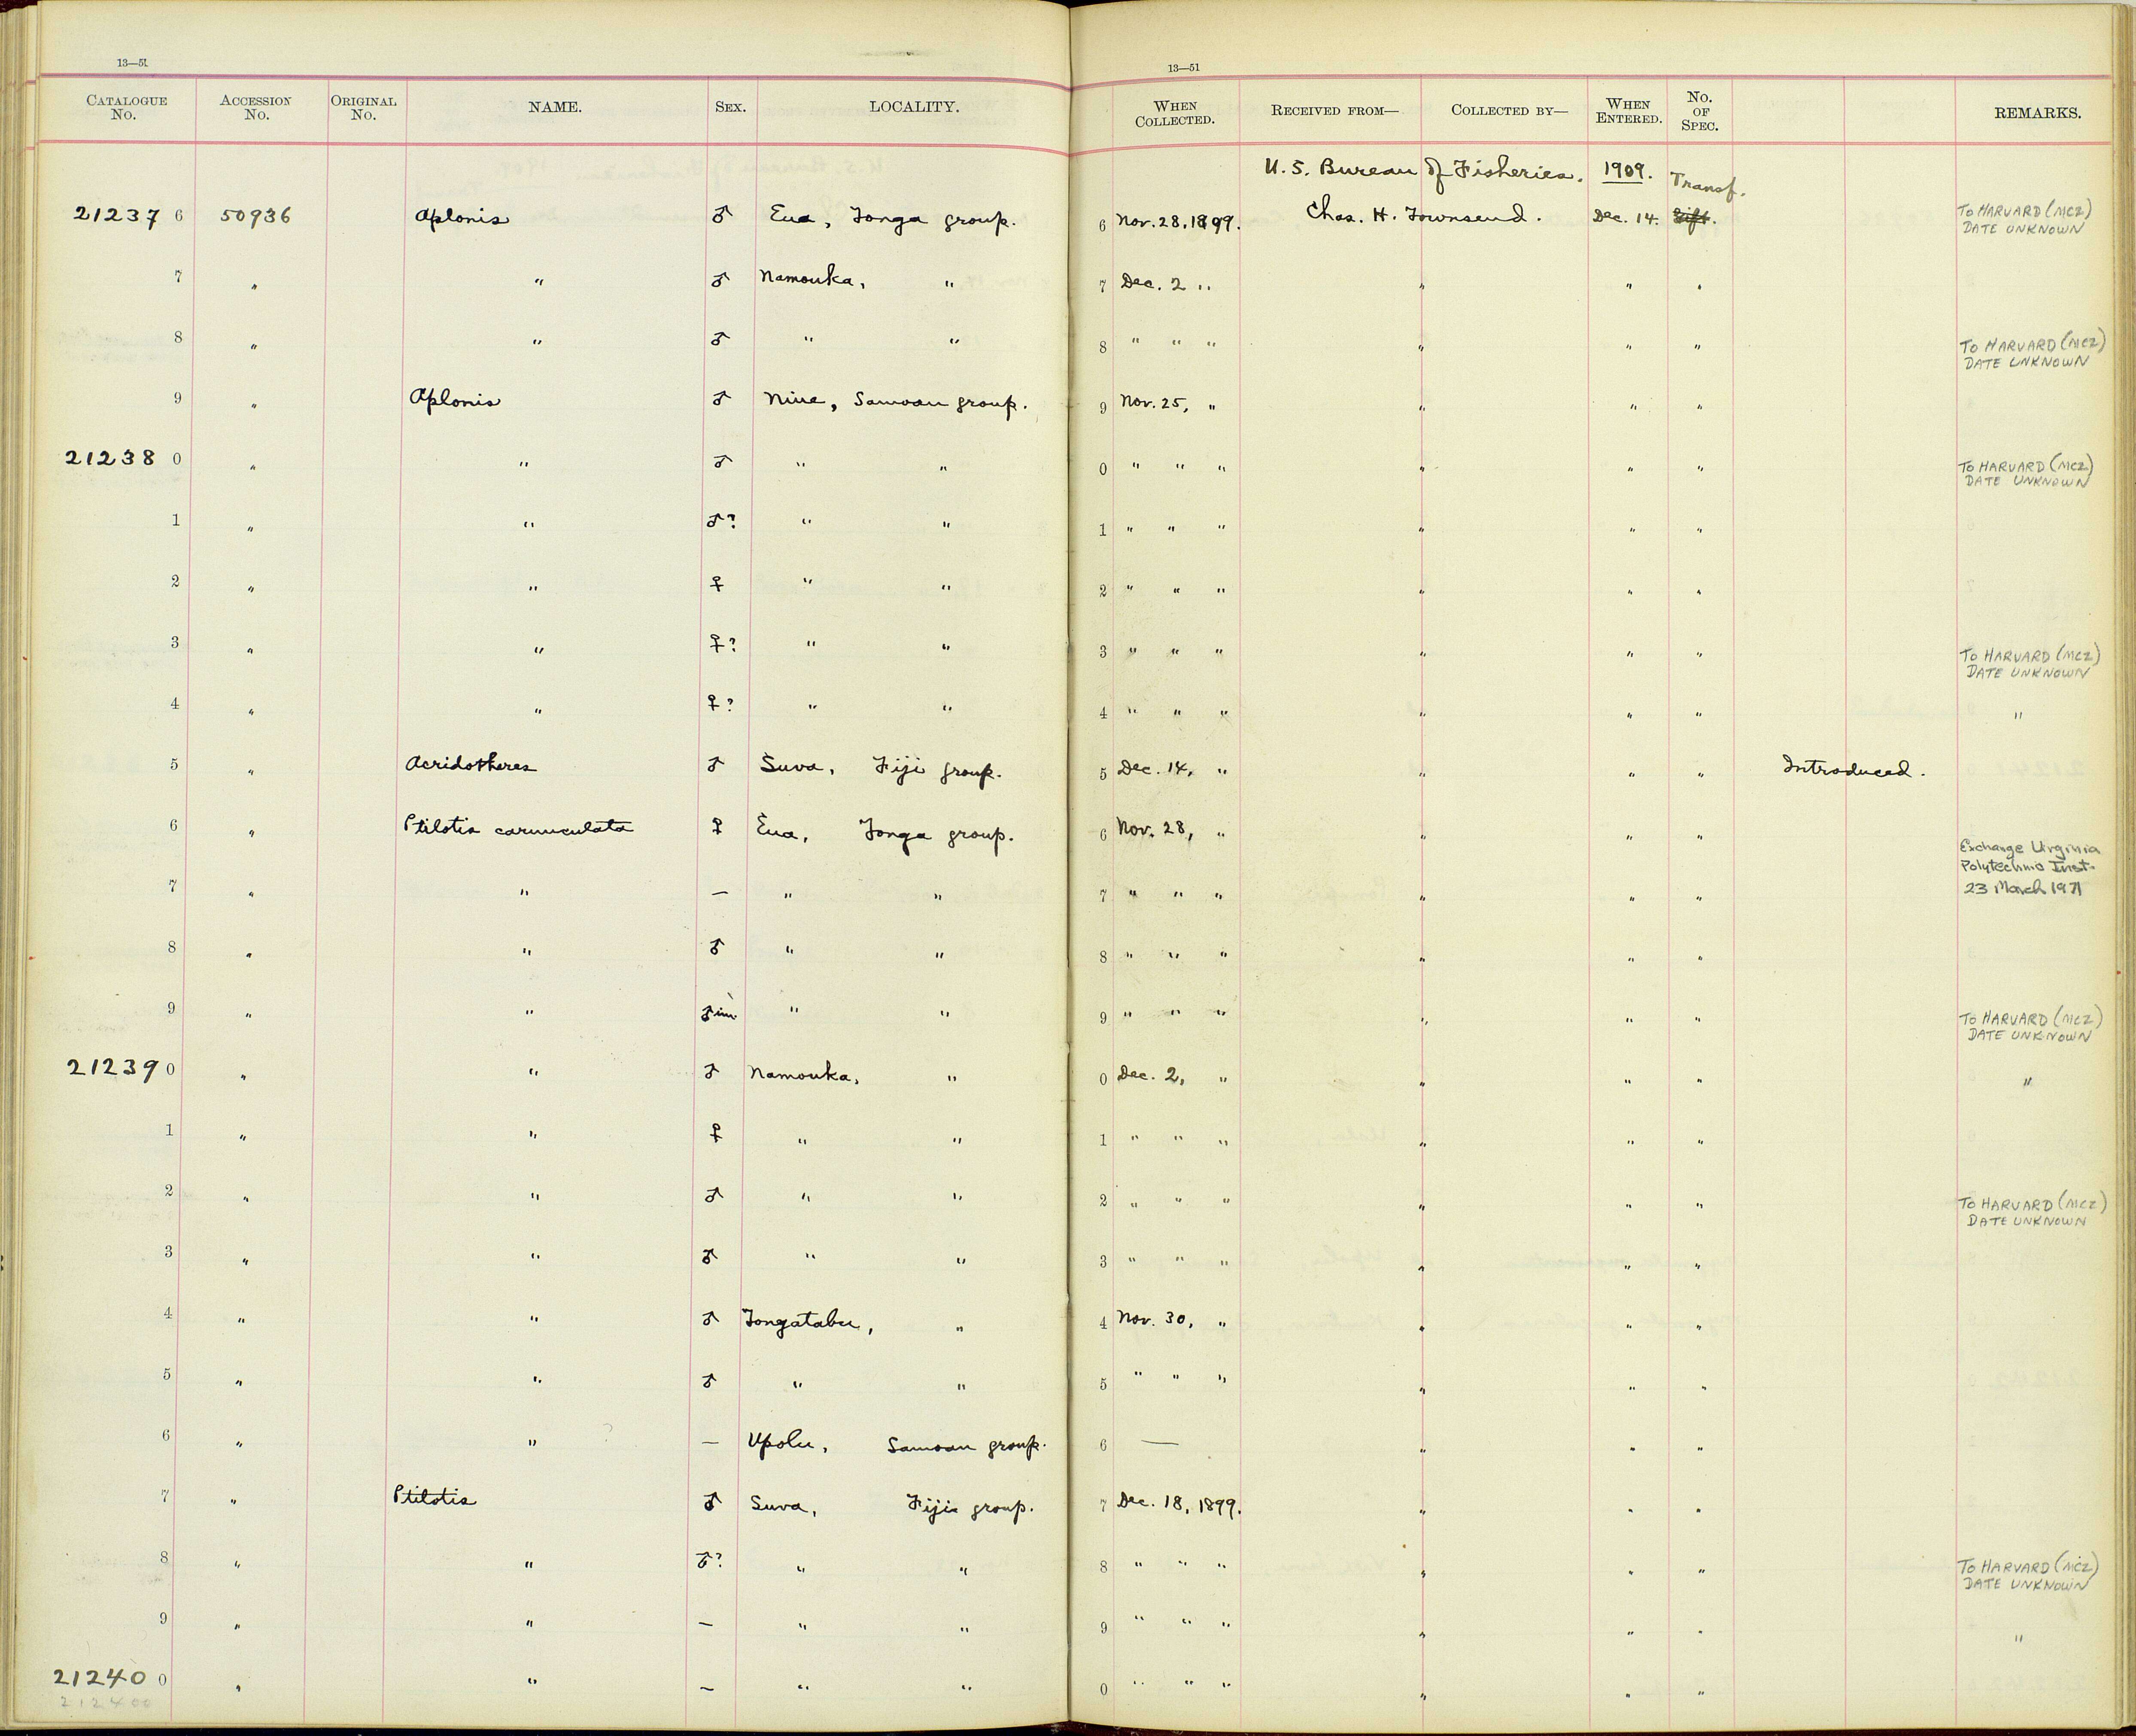 13—51
13—51
CATALOGUE No. ACCESSION No. ORIGINAL No. NAME. SEX. LOCALITY. WHEN COLLECTED. RECEIVED FROM— COLLECTED BY— WHEN ENTERED. No. OF SPEC. REMARKS.
U. S. Bureau of Fisheries. 1909. Transf.
21237 6 50936 Aplonis ♂ Eua, Tonga group. 6 Nov. 28, 1899. Chas. H. Townsend. Dec. 14. Gift. TO HARVARD (MCZ) DATE UNKNOWN
7 " " ♂ Namouka, " 7 Dec. 2 " " " "
8 " " ♂ " " 8 " " " " " " TO HARVARD (MCZ) DATE UNKNOWN
9 " Aplonis ♂ Niue, Samoan group. 9 Nov. 25, " " " "
21238 0 " " ♂ " " 0 " " " " " " TO HARVARD (MCZ) DATE UNKNOWN
1 " " ♂? " " 1 " " " " " "
2 " " ♀ " " 2 " " " " " "
3 " " ♀? " " 3 " " " " " " TO HARVARD (MCZ) DATE UNKNOWN
4 " " ♀? " " 4 " " " " " " "
5 " Acridotheres ♂ Suva, Fiji group. 5 Dec. 14, " " " " Introduced.
6 " Ptilotis carunculata ♀ Eua, Tonga group. 6 Nov. 28, " " " "
7 " " — " " 7 " " " " " " Exchange Virginia Polytechnic Inst. 23 March 1971
8 " " ♂ " " 8 " " " " " "
9 " " ♂ im. " " 9 " " " " " " TO HARVARD (MCZ) DATE UNKNOWN
21239 0 " " ♂ Namouka, " 0 Dec. 2, " " " " "
1 " " ♀ " " 1 " " " " " "
2 " " ♂ " " 2 " " " " " " TO HARVARD (MCZ) DATE UNKNOWN
3 " " ♂ " " 3 " " " " " "
4 " " ♂ Tongatabu, " 4 Nov. 30, " " " "
5 " " ♂ " " 5 " " " " " "
6 " " ? — Upolu, Samoan group. 6 — " " "
7 " Ptilotis ♂ Suva, Fiji group. 7 Dec. 18, 1899. " " "
8 " " ♂? " " 8 " " " " " " TO HARVARD (MCZ) DATE UNKNOWN
9 " " — " " 9 " " " " " " "
21240 0 " " — " " 0 " " " " " "
212400